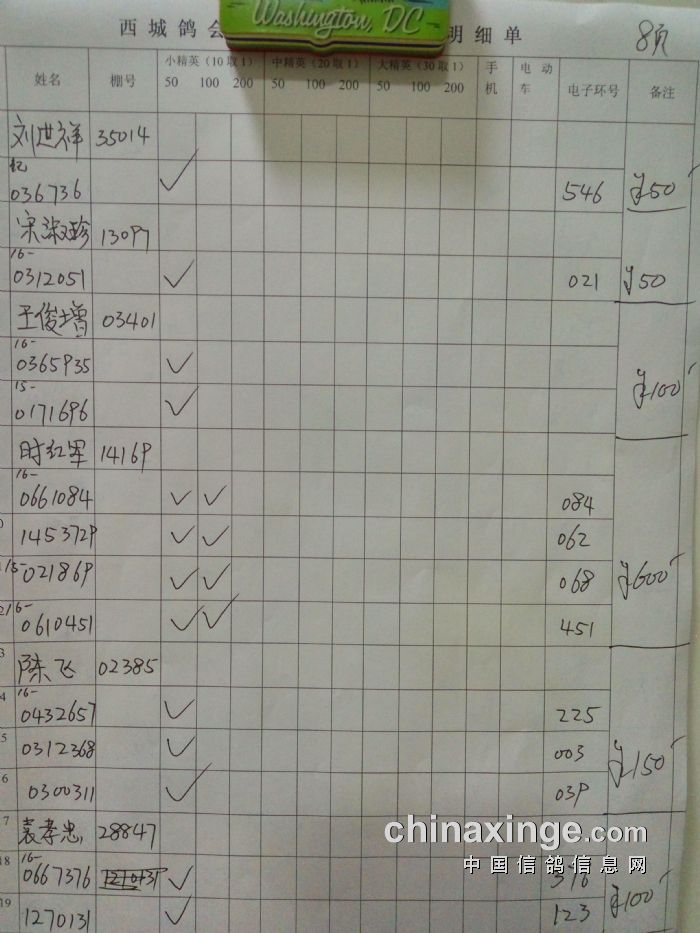 Washington, DC
西城鸽会 明细单 8页
姓名 棚号 小精英(10取1) 中精英(20取1) 大精英(30取1) 手机 电动车 电子环号 备注
50 100 200 50 100 200 50 100 200
刘世祥 35014
036736 ✓ 546 ¥50
宋淑珍 13097
16-
0312051 ✓ 021 ¥50
王俊增 03401
16-
0365935 ✓
15-
0171696 ✓ ¥100
时红军 14169
16-
0661084 ✓ ✓ 084
1453729 ✓ ✓ 062
15-021869 ✓ ✓ 068 ¥600
16-
0610451 ✓ ✓ 451
陈飞 02385
16-
0432657 ✓ 225
0312368 ✓ 003 ¥150
0300311 ✓ 039
袁孝忠 28847
chinaxinge.com
中国信鸽信息网
16-
0667376 ✓ 376 ¥100
1270131 ✓ 123